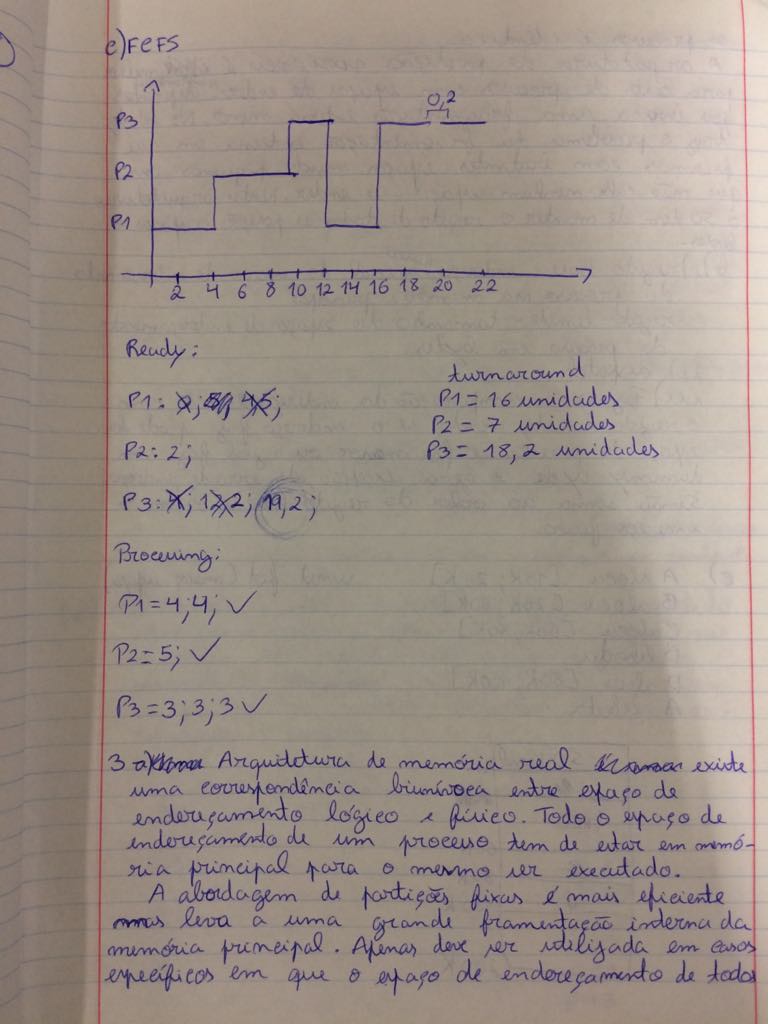 c) FCFS
0,2
P3
P2
P1
2 4 6 8 10 12 14 16 18 20 22
Ready:
turnaround
P1: ; ; ;
P1 = 16 unidades
P2: 2;
P2 = 7 unidades
P3: ; ; 19,2;
P3 = 18,2 unidades
Processing:
P1 = 4; 4; ✓
P2 = 5; ✓
P3 = 3; 3; 3 ✓
3 a) Arquitetura de memória real existe
uma correspondência biunívoca entre espaço de
endereçamento lógico e físico. Todo o espaço de
endereçamento de um processo tem de estar em memó-
ria principal para o mesmo ser executado.
A abordagem de partições fixas é mais eficiente
mas leva a uma grande framentação interna da
memória principal. Apenas deve ser utilizada em casos
específicos em que o espaço de endereçamento de todos